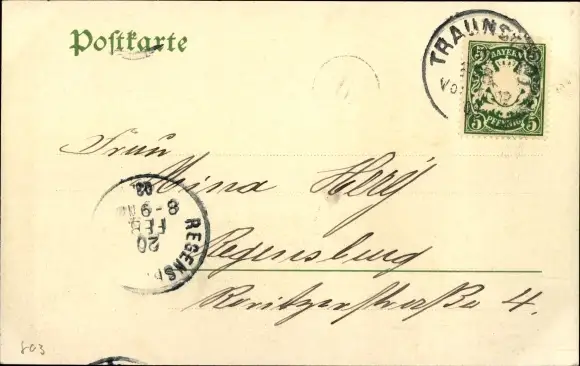 Postkarte
TRAUNS
5 BAYERN 5
5 PFENNIG 5
Frau
Mina Herz
Regensburg
Roritzerstraße 4.
REGENSB
20
FEB
8-9
03.
803